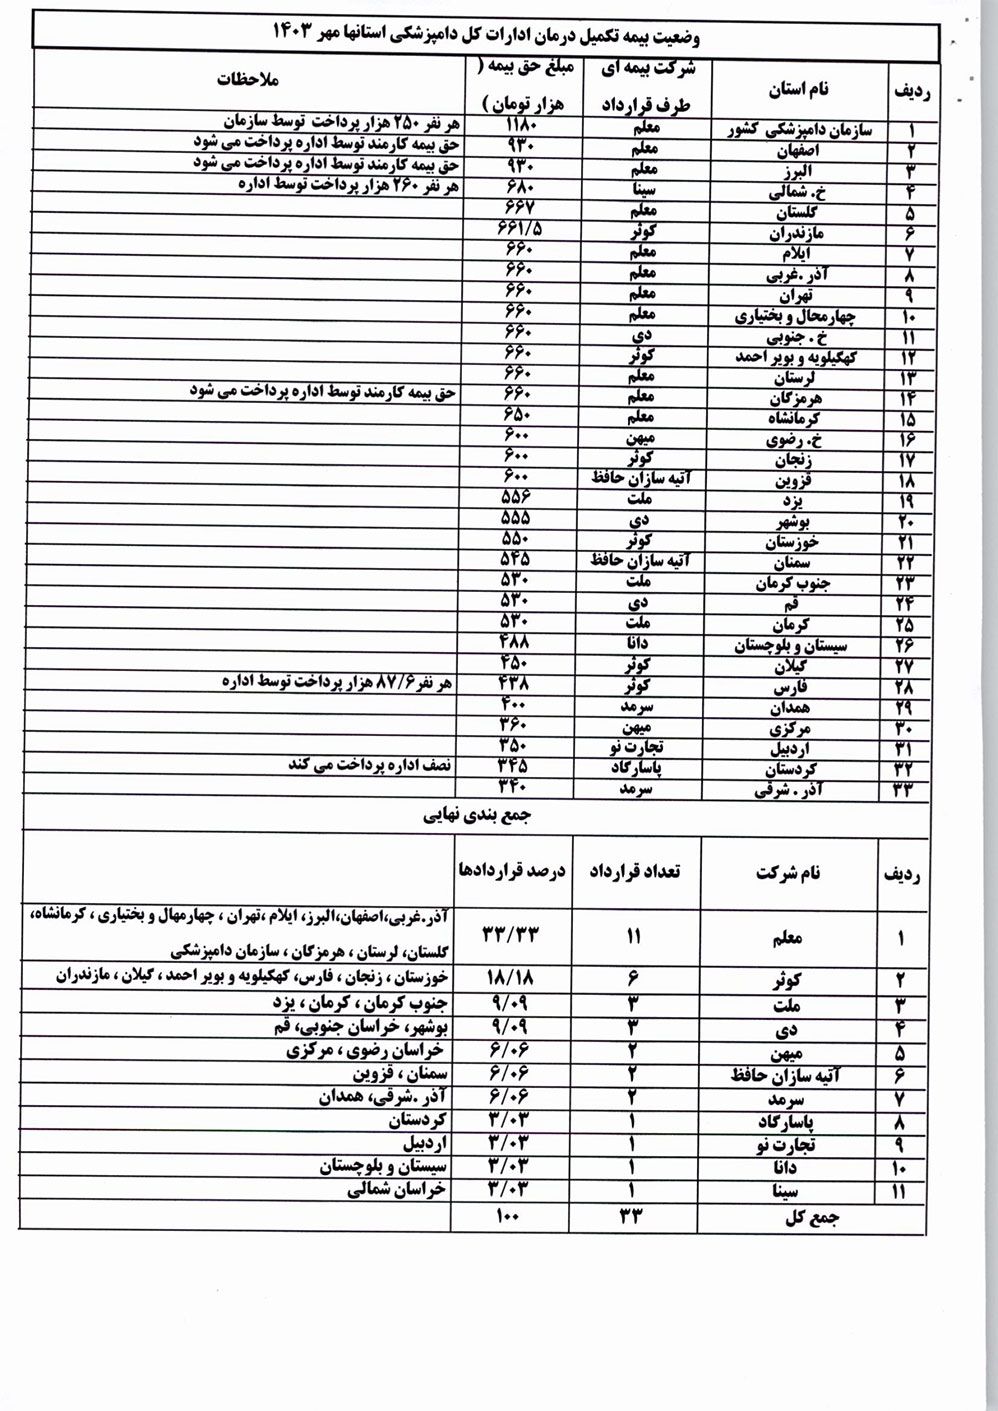 وضعیت بیمه تکمیل درمان ادارات کل دامپزشکی استانها مهر ۱۴۰۳
ردیف نام استان شرکت بیمه ای طرف قرارداد مبلغ حق بیمه ( هزار تومان ) ملاحظات
۱ سازمان دامپزشکی کشور معلم ۱۱۸۰ هر نفر ۲۵۰ هزار پرداخت توسط سازمان
۲ اصفهان معلم ۹۳۰ حق بیمه کارمند توسط اداره پرداخت می شود
۳ البرز معلم ۹۳۰ حق بیمه کارمند توسط اداره پرداخت می شود
۴ خ. شمالی سینا ۶۸۰ هر نفر ۲۶۰ هزار پرداخت توسط اداره
۵ گلستان معلم ۶۶۷
۶ مازندران کوثر ۶۶۱/۵
۷ ایلام معلم ۶۶۰
۸ آذر .غربی معلم ۶۶۰
۹ تهران معلم ۶۶۰
۱۰ چهارمحال و بختیاری معلم ۶۶۰
۱۱ خ . جنوبی دی ۶۶۰
۱۲ کهگیلویه و بویر احمد کوثر ۶۶۰
۱۳ لرستان معلم ۶۶۰
۱۴ هرمزگان معلم ۶۶۰ حق بیمه کارمند توسط اداره پرداخت می شود
۱۵ کرمانشاه معلم ۶۵۰
۱۶ خ. رضوی میهن ۶۰۰
۱۷ زنجان کوثر ۶۰۰
۱۸ قزوین آتیه سازان حافظ ۶۰۰
۱۹ یزد ملت ۵۵۶
۲۰ بوشهر دی ۵۵۵
۲۱ خوزستان کوثر ۵۵۰
۲۲ سمنان آتیه سازان حافظ ۵۴۵
۲۳ جنوب کرمان ملت ۵۳۰
۲۴ قم دی ۵۳۰
۲۵ کرمان ملت ۵۳۰
۲۶ سیستان و بلوچستان دانا ۴۸۸
۲۷ گیلان کوثر ۴۵۰
۲۸ فارس کوثر ۴۳۸ هر نفر ۸۷/۶ هزار پرداخت توسط اداره
۲۹ همدان سرمد ۴۰۰
۳۰ مرکزی میهن ۳۶۰
۳۱ اردبیل تجارت نو ۳۵۰
۳۲ کردستان پاسارگاد ۳۴۵ نصف اداره پرداخت می کند
۳۳ آذر . شرقی سرمد ۳۴۰
جمع بندی نهایی
ردیف نام شرکت تعداد قرارداد درصد قراردادها
۱ معلم ۱۱ ۳۳/۳۳ آذر.غربی،اصفهان،البرز، ایلام ،تهران ، چهارمهال و بختیاری ، کرمانشاه،
گلستان، لرستان ، هرمزگان ، سازمان دامپزشکی
۲ کوثر ۶ ۱۸/۱۸ خوزستان ، زنجان ، فارس، کهگیلویه و بویر احمد ، گیلان ، مازندران
۳ ملت ۳ ۹/۰۹ جنوب کرمان ، کرمان ، یزد
۴ دی ۳ ۹/۰۹ بوشهر، خراسان جنوبی، قم
۵ میهن ۲ ۶/۰۶ خراسان رضوی ، مرکزی
۶ آتیه سازان حافظ ۲ ۶/۰۶ سمنان ، قزوین
۷ سرمد ۲ ۶/۰۶ آذر .شرقی، همدان
۸ پاسارگاد ۱ ۳/۰۳ کردستان
۹ تجارت نو ۱ ۳/۰۳ اردبیل
۱۰ دانا ۱ ۳/۰۳ سیستان و بلوچستان
۱۱ سینا ۱ ۳/۰۳ خراسان شمالی
جمع کل ۳۳ ۱۰۰